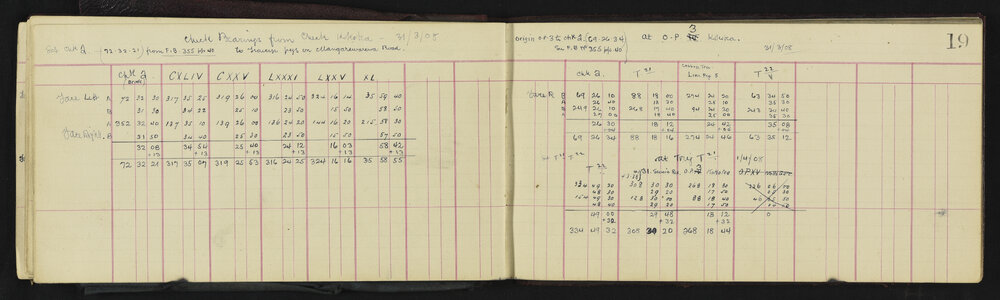 Check Bearings from Check Kkoka - 31/3/08
Sub chk a. (72.32.21) from F.B. 355 p. 40 to traverse pegs on Mangarewarewa Road.
chk a. CXLIV CXXV LXXXI LXXV XL
Face Left A 72 32 30 317 35 25 319 26 00 316 24 50 324 16 14 35 59 40
B 31 30 34 22 25 10 23 50 15 50 58 50
A 252 32 40 137 35 10 139 26 00 136 24 20 144 16 20 215 58 30
Face Right B 31 50 34 40 25 30 23 50 15 50 57 50
32 08 34 54 25 40 24 12 16 03 58 42
+13 +13 +13 +13 +13 +13
72 32 21 317 35 07 319 25 53 316 24 25 324 16 16 35 58 55
19
Origin O.P.3 to chk a. (69.26.34) at O.P. 3
See F.B. No 355 p. 40 31/3/08
chk a. T 20 T 22 V
Face R B 69 26 10 88 18 00 274 24 20 63 34 50
A 26 40 18 30 25 10 35 30
B 249 26 10 268 17 40 94 24 20 243 34 40
A 27 00 18 40 25 00 35 30
26 30 18 12 24 42 35 08
+04 +04 +04 +04
69 26 34 88 18 16 274 24 46 63 35 12
at Trig T 21 1/4/08
334 49 20 308 30 30 268 18 30 226 06 00
48 30 29 20 17 50
154 49 30 128 30 00 88 18 40
48 40 29 20 17 50
49 00 29 48 18 12 0
+32 +32 +32
334 49 32 308 30 20 268 18 44